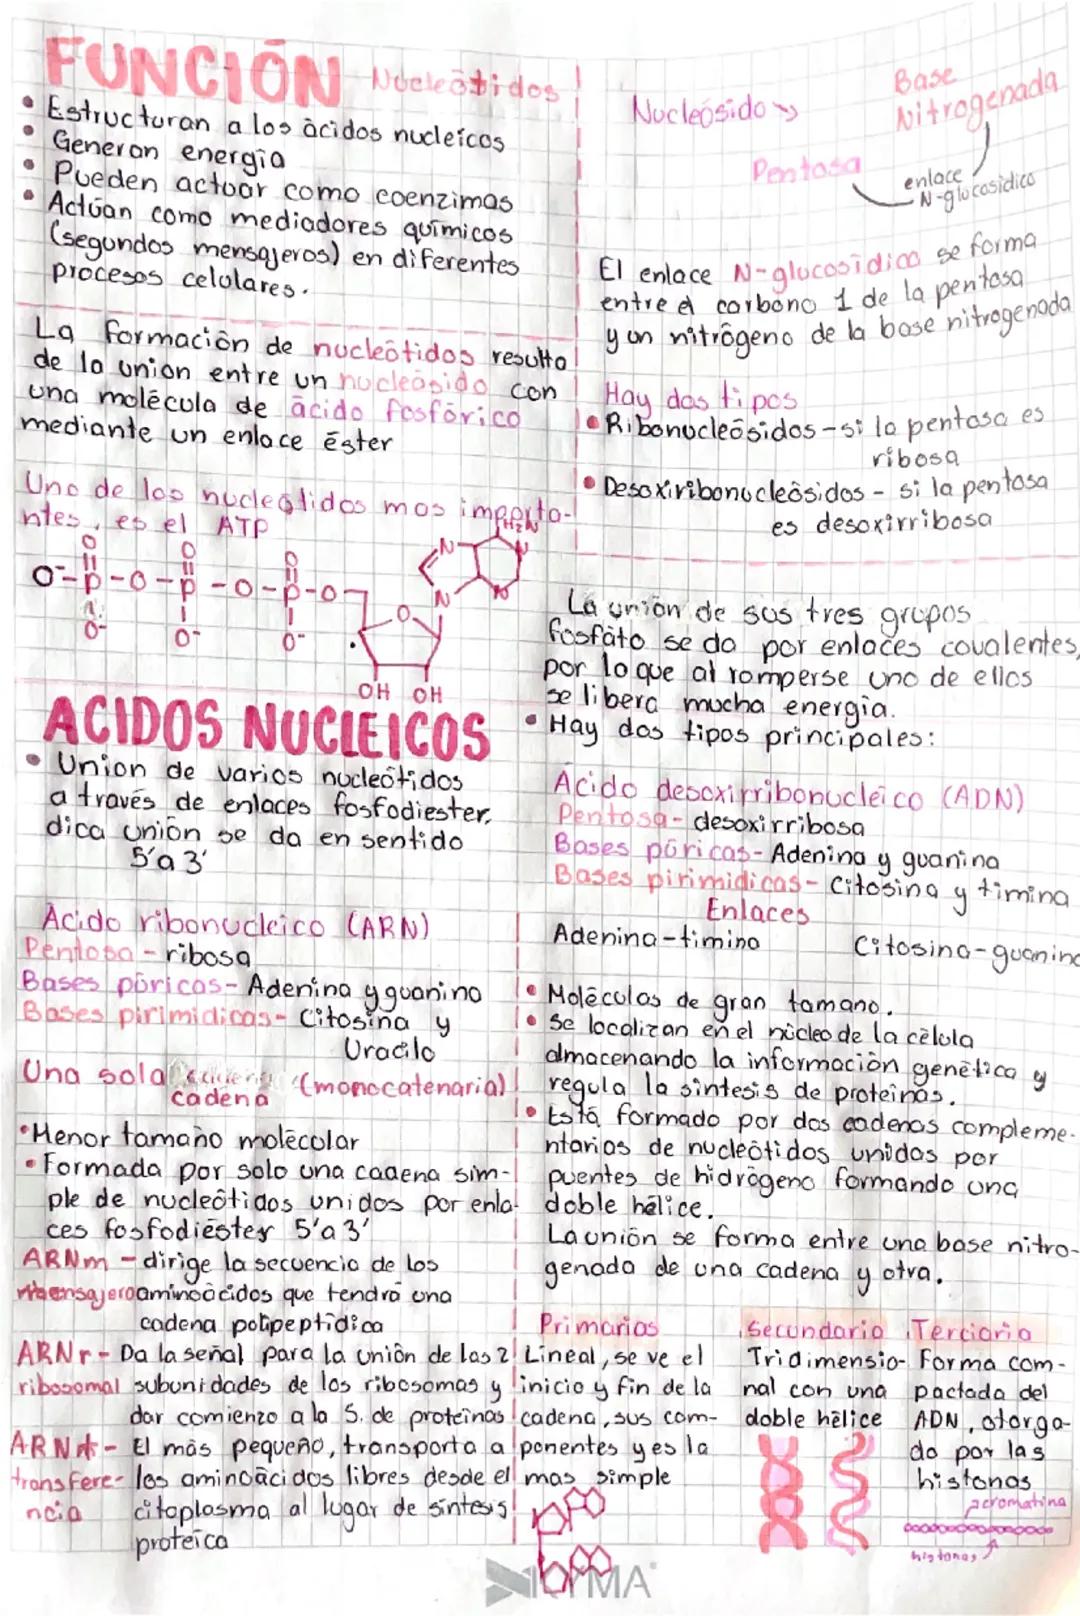 FUNCIÓN Nucleótidos
• Estructuran a los àcidos nucleícos
• Generan energía
• Pueden actuar como coenzimas
• Actúan como mediadores químicos
(segundos mensajeros) en diferentes
procesos celulares.
La formación de nucleótidos resulta
de la union entre un nucleósido con
una molécula de ácido fosfórico
mediante un enlace éster
Uno de los nucleótidos mas importa-
ntes, es el ATP
O O O
O⁻-P-O-P-O-P-O
O- O- O-
H₂N
N N
N N
O
OH OH
ACIDOS NUCLEICOS
• Union de varios nucleótidos
a través de enlaces fosfodiester,
dica unión se da en sentido
5'a 3'
Ácido ribonucleico (ARN)
Pentosa - ribosa
Bases púricas- Adenina y guanina
Bases pirimidicas- Citosina y
Uracilo
Una sola cadena (monocatenaria)
• Menor tamaño molécular
• Formada por solo una cadena sim-
ple de nucleótidos unidos por enla-
ces fosfodiéster 5'a 3'
ARNm - dirige la secuencia de los
mensajero aminoácidos que tendrá una
cadena polipeptídica
ARNr - Da la señal para la unión de las 2
ribosomal subunidades de los ribosomas y
dar comienzo a la S. de proteínas
ARNt - El más pequeño, transporta a
transfere- los aminoácidos libres desde el
ncia citoplasma al lugar de síntesis
proteíca
Nucleósido
Base
Nitrogenada
Pentosa
enlace
N-glucosídico
El enlace N-glucosídico se forma
entre el carbono 1 de la pentosa
y un nitrógeno de la base nitrogenada
Hay dos tipos
• Ribonucleósidos - si la pentosa es
ribosa
• Desoxiribonucleósidos - si la pentosa
es desoxirribosa
La unión de sus tres grupos
fosfáto se da por enlaces covalentes,
por lo que al romperse uno de ellos
se libera mucha energía.
• Hay dos tipos principales:
Ácido desoxirribonucléico (ADN)
Pentosa- desoxirribosa
Bases púricas- Adenina y guanina
Bases pirimidicas- Citosina y timina
Enlaces
Adenina-timina Citosina-guanina
• Moléculas de gran tamano.
• Se localizan en el núcleo de la célula
almacenando la información genética y
regula la síntesis de proteínas.
• Está formado por dos cadenas compleme-
ntarias de nucleótidos unidos por
puentes de hidrógeno formando una
doble hélice.
La unión se forma entre una base nitro-
genada de una cadena y otra.
Primarias
Lineal, se ve el
inicio y fin de la
cadena, sus com-
ponentes y es la
mas simple
Secundario
Tridimensio-
nal con una
doble hélice
Terciaria
Forma com-
pactada del
ADN, otorga-
do por las
histonas
cromatina
histonas
NORMA